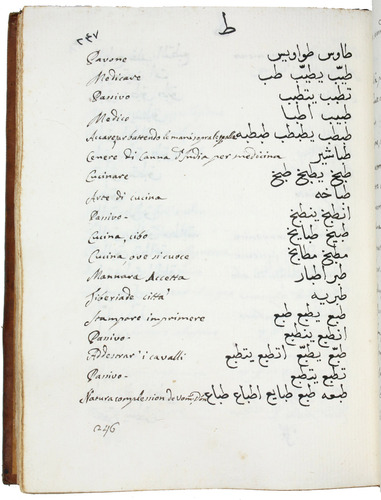 ٢٤٧ ط
Pavone طاوس طواويس
Medicare طيّب يطيّب طب
Passivo تطبب يتطبب
Medico طبيب اطبا
طبطب يطبطب طبطبه
Cenere di Canna d'India per medicina طباشير
Cucinare طبخ يطبخ طبخ
Arte di cucina طباخه
Passivo- انطبخ ينطبخ
Cucina, cibo طبيخ طبايخ
Cucina, ove si cuoce مطبخ مطابخ
Mannara Accetta طبر اطبار
Tiberiade città طبريه
Stampare imprimere طبع يطبع طبع
Passivo- انطبع ينطبع
Addestrar' i cavalli طبّع يطبّع
Passivo- تطبع يتطبع
Natura complession طبعه طبع طبايع اطباع طباع
246